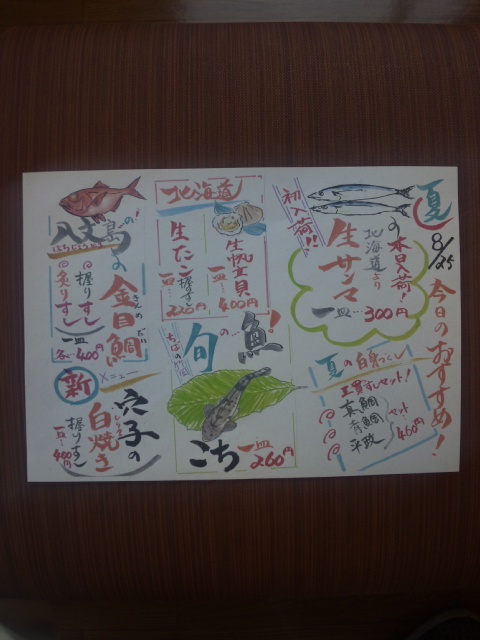 夏
8/25
今日のおすすめ!
本日入荷!
北海道より
の
生サンマ
一皿…300円
初入荷!!
夏の白身づくし
三貫すしセット!
真鯛
青鯛
平政
セット
460円
北海道
生帆立貝
一皿…400円
生たこ
握すし
一皿…220円
旬の魚!
こち
一皿…260円
八丈島の!
はちじょうじま
金目鯛
きんめだい
握りすし
炙りすし
一皿
各…400円
新
メニュー
穴子の
白焼き
しらやき
握りすし
一皿…400円